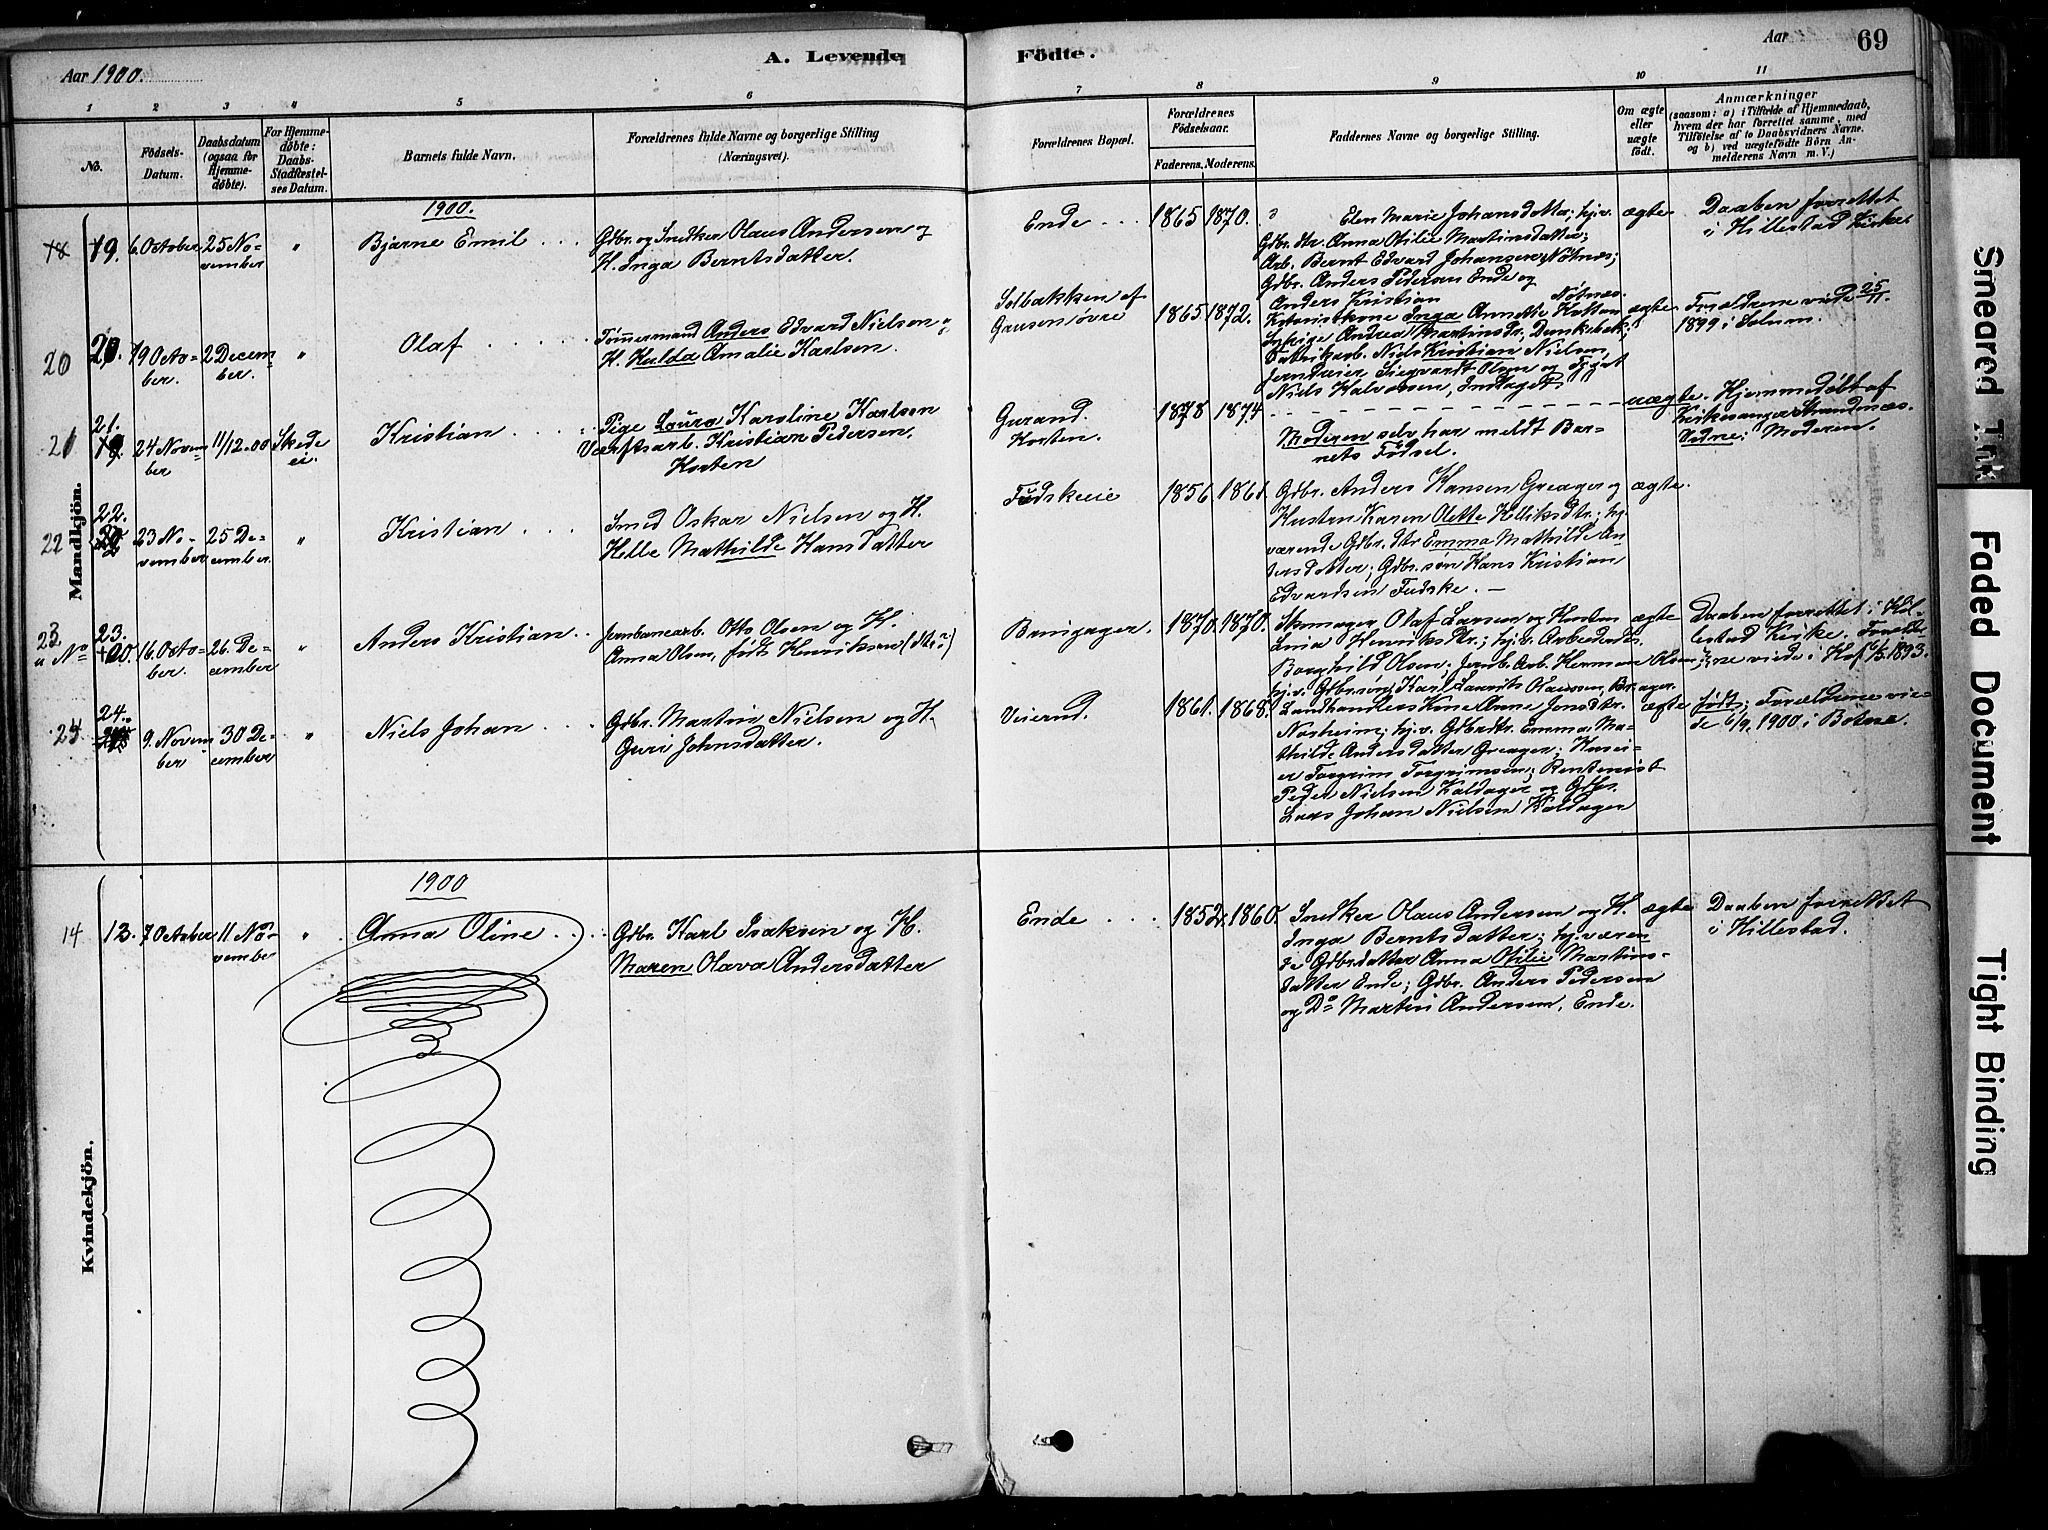 Aar 1900.
A. Levende
Födte.
Aar
69
1 2 3 4 5 6 7 8 9 10 11
No.
Födsels-
Datum.
Daabsdatum
(ogsaa for
Hjemme-
døbte).
For Hjemme-
døbte:
Daabs-
Stadfæstel-
ses Datum.
Barnets fulde Navn.
Forældrenes fulde Navne og borgerlige Stilling
(Næringsvei).
Forældrenes Bopæl.
Forældrenes
Födselsaar.
Faderens. Moderens.
Faddernes Navne og borgerlige Stilling.
Om ægte
eller
uægte
født.
Anmærkninger
(saasom: a) i Tilfælde af Hjemmedaab,
hvem der har forrettet samme, med
Tilføielse af to Daabsvidners Navne.
og b) ved uægtefödte Börn An-
melderens Navn m. V.)
Mandkjön.
1900.
18 19. 6 October 25 No-
vember
"
Bjarne Emil
Gdbr. og Snedker Olaus Andersen og
H. Inga Berntsdatter.
Ende
1865 1870.
Elen Marie Johansdatter; hj.v.
Gdbr.dtr. Anna Otilie Martinsdatter;
Arb. Bernt Edvard Johansen, Nøtnæs;
Gdbr. Anders Pedersen Ende og
Anders Kristian Nøtnæs.
ægte
Daaben forrettet
i Hillestad Kirke.
20 20. 19 Octo-
ber.
2 Decem-
ber.
"
Olaf
Tømmermand Anders Edvard Nielsen og
H. Hulda Amalie Karlsen.
Solbakken af
Grusen øvre
1865. 1872.
Inga Annette
Nielsen,
Niels Halvorsen,
ægte
Forældrene viede 25/11
1899 i Solum.
21 21. 24 Novem
ber
11/12.00
Skede
ei.
Kristian
Pige Laura Karoline Karlsen
Værftsarb. Kristian Pedersen,
Horten
Gurand.
Horten.
1878 1874
Moderen selv har meldt Bar-
nets Fødsel.
uægte.
Hjemmedøbt af
Kirkesanger Strandnæs.
Vidne: Moderen.
22 22. 23 No-
vember
25 De-
cember
"
Kristian
Smed Oskar Nielsen og H.
Helle Mathilde Hansdatter
Fudskeie
1856 1861
Gdbr. Anders Hansen Greager og
Husten Karen Olette Helliksdtr.; hj-
værende Gdbr.dtr Emma Mathilde An-
dersdatter; Gdbr.søn Hans Kristian
Edvardsen Fudske. —
ægte.
23 23. 16. Octo-
ber.
26. De-
cember
"
Anders Kristian
Jernbanearb. Otto Olsen og H.
Anna Olsen, født Henriksen (dtr?)
Bruigager.
1870. 1870.
Skomager Olaf Larsen og Husten
Lina Henriksdtr.; hj.v. Arbeiderdtr.
Borghild Olsen. Jernb.Arb. Herman Olsen;
hj.v. Gdbr.søn Karl Laurits Olaussen, Br.ager.
ægte
Daaben forrettet i Hil-
lestad Kirke. Foræld-
rene viede i Hof 1893.
24 24. 9. Novem
ber
30 De-
cember
"
Niels Johan
Gdbr. Martin Nielsen og H.
Guri Johnsdatter.
Veierud.
1861. 1868.
Landhandlerske Kine Anne Jonsdtr.
hj.v. Gdbrdtr. Emma Ma-
thilde Andersdatter Greager;
Torgrim Torgrimsen; Rentenist
Peder Nielsen Haldager og Gdbr.
Lars Johan Nielsen Haldager
ægte
født; Forældrene vie-
de 6/9 1900 i Botne.
Kvindekjön.
1900
14 13. 7 October 11 No-
vember
"
Anna Oline
Gdbr. Karl Isaksen og H.
Maren Olava Andersdatter
Ende
1852. 1860.
Snedker Olaus Andersen og H.
Inga Berntsdatter; hj.væren-
de Gdbr.datter Anna Otilie Martins-
datter Ende; Gdbr. Anders Pedersen
og Do Martin Andersen, Ende.
ægte
Daaben forrettet
i Hillestad.
Smeared Ink
Faded Document
Tight Binding